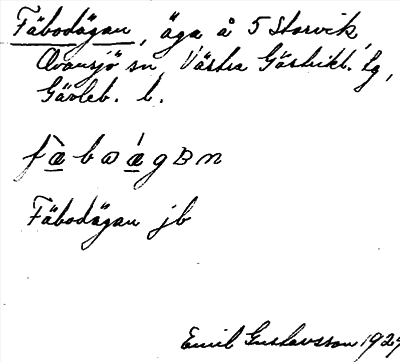 Fäbodägan, äga å 5 Storvik,
Ovansjö sn, Västra Gästrikl. tg,
Gävleb. l.
fæ̀bɷǽgBn
Fäbodägan jb
Emil Gustavsson 1927